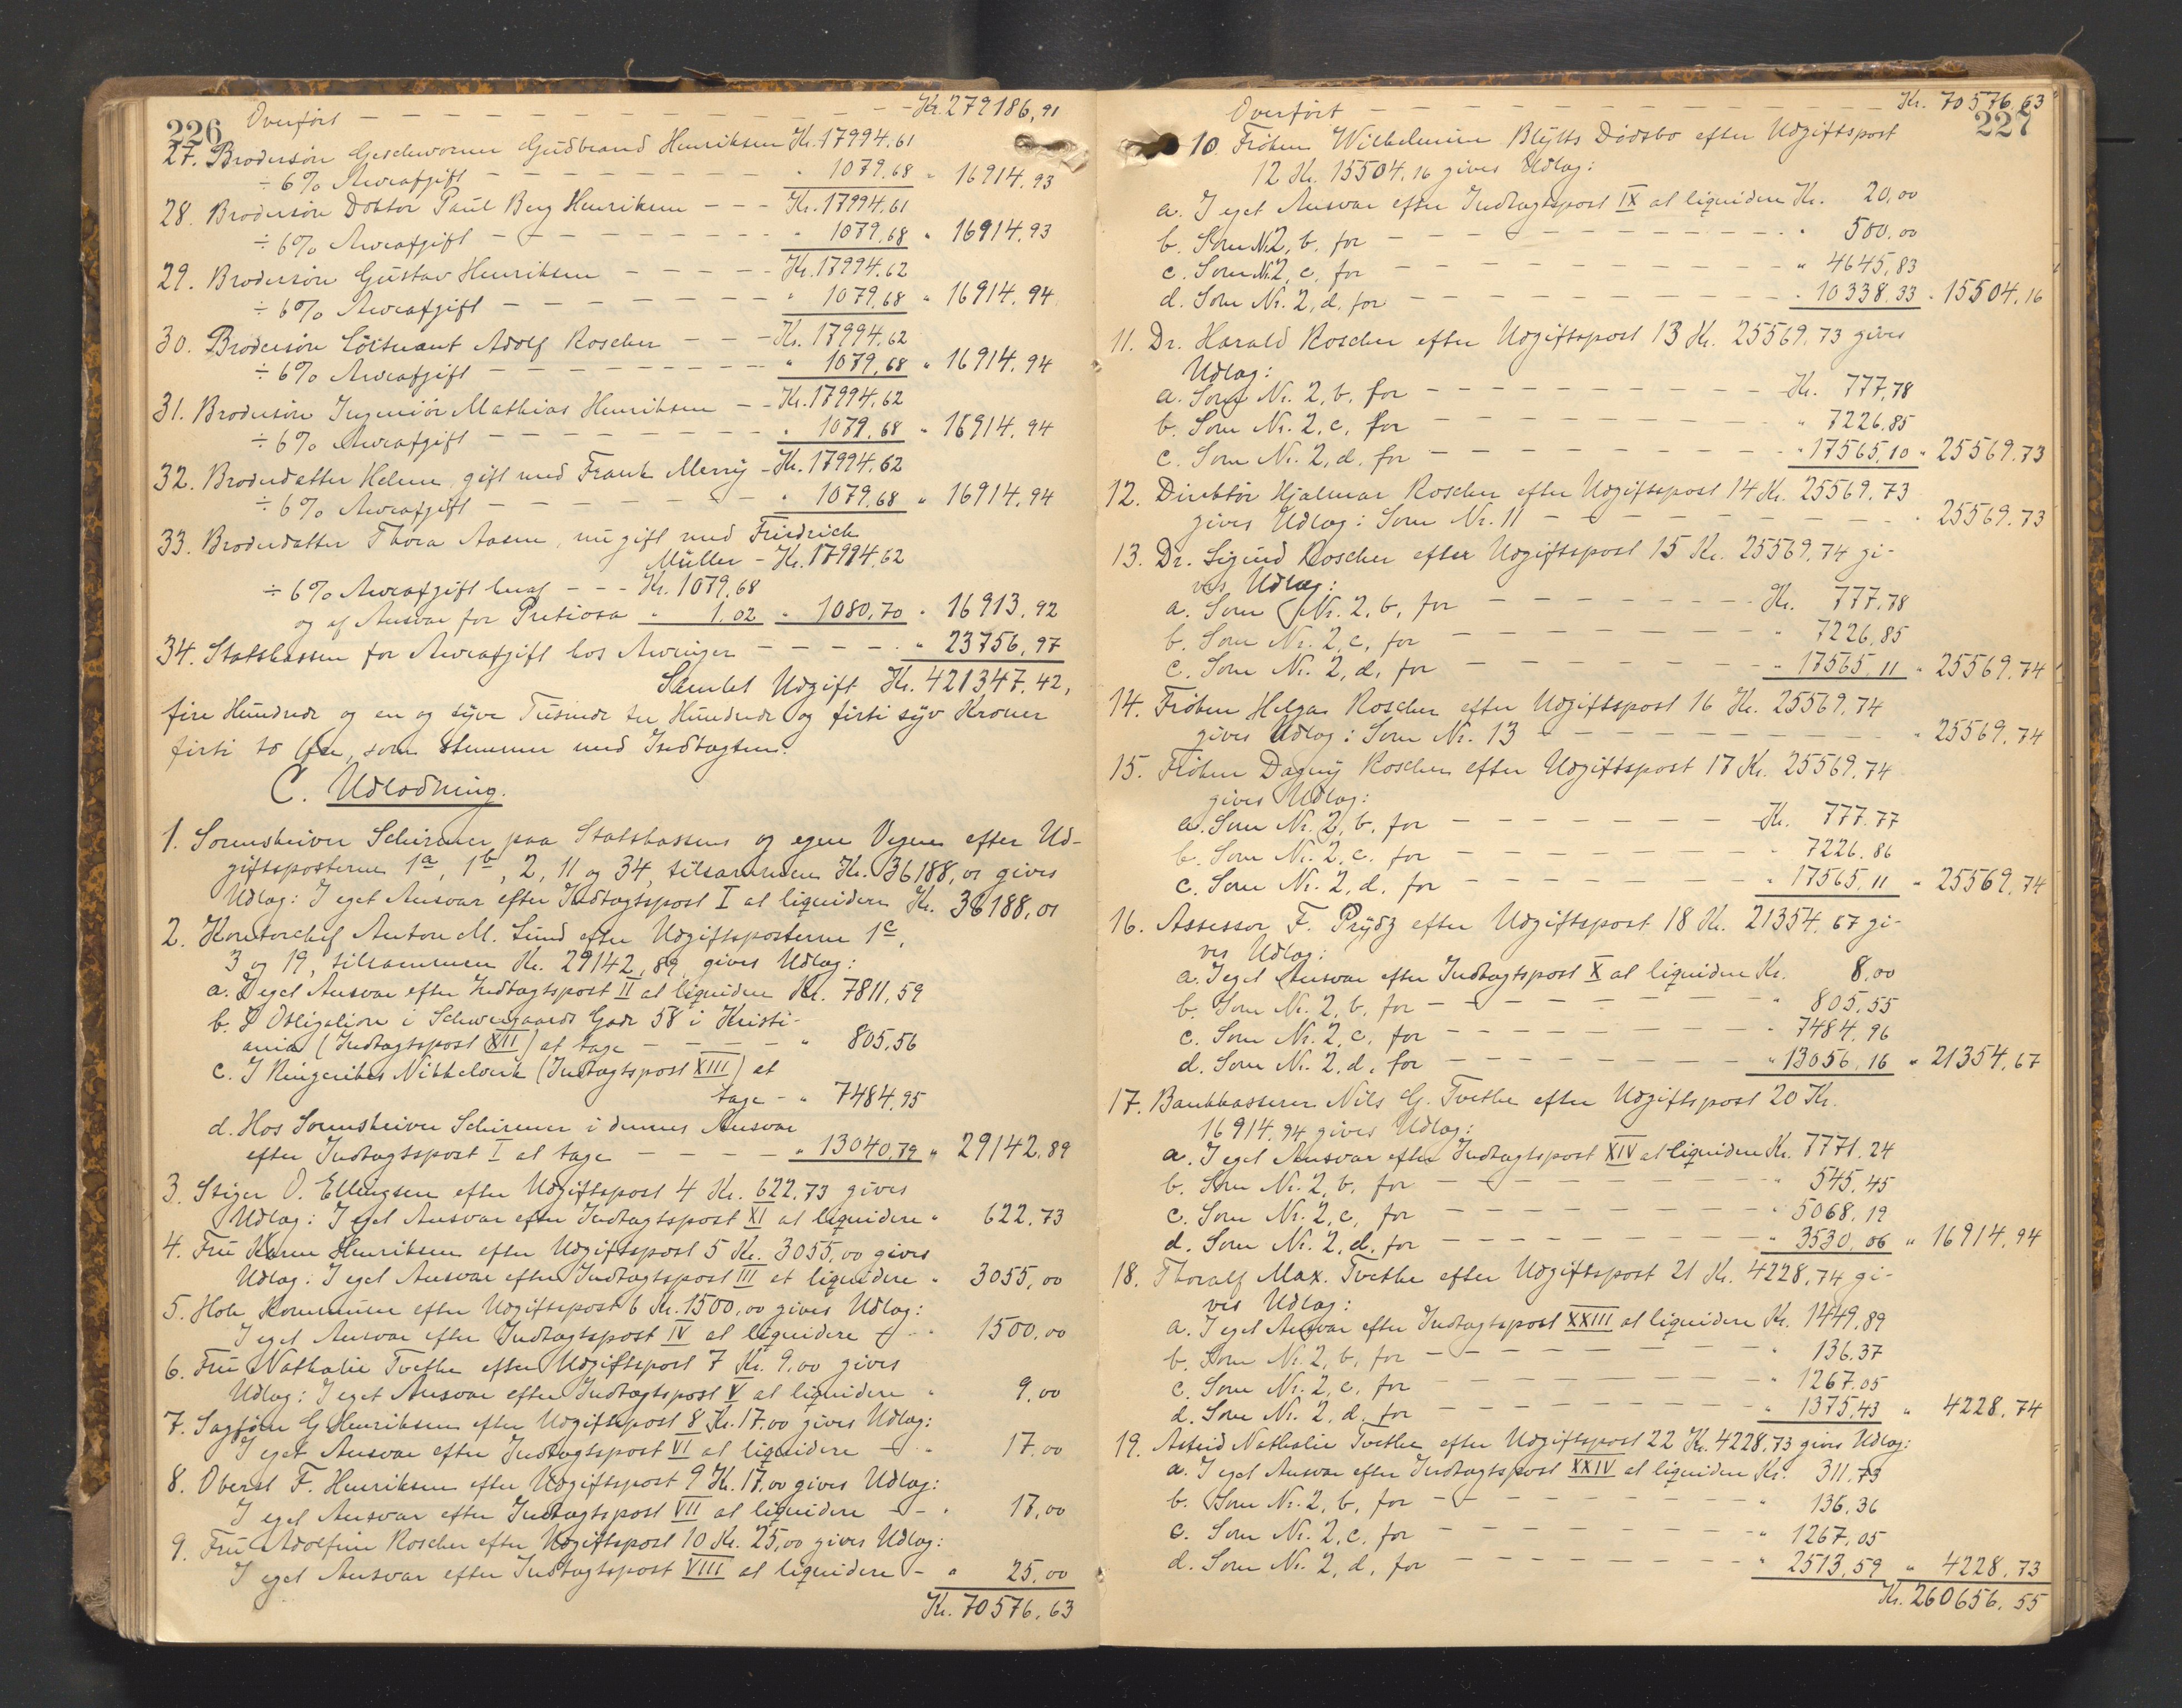 226
Overført — — — Kr. 279186,91
27. Brodersøn Geschworner Gudbrand Henriksen Kr. 17994.61
÷ 6% Arveafgift — — — " 1079.68 " 16914.93
28. Brodersøn Doktor Paul Berg Henriksen — — — Kr. 17994.61
÷ 6% Arveafgift — — — " 1079.68 " 16914.93
29. Brodersøn Gustav Henriksen — — — Kr. 17994.62
÷ 6% Arveafgift — — — " 1079.68 " 16914.94
30. Brodersøn Løitnant Adolf Roscher — — — Kr. 17994.62
÷ 6% Arveafgift — — — " 1079.68 " 16914.94
31. Brodersøn Ingeniør Mathias Henriksen — — Kr. 17994.62
÷ 6% Arveafgift — — — " 1079.68 " 16914.94
32. Broderdatter Helene, gift med Frank Merry — Kr. 17994.62
÷ 6% Arveafgift — — — " 1079.68 " 16914.94
33. Broderdatter Thora Aasen, nu gift med Friedrich
Müller — Kr. 17994.62
÷ 6% Arveafgift heraf — — — Kr. 1079.68
og af Ansvar for Pretiosa " 1.02 " 1080.70 " 16913.92
34. Statskassen for Arveafgift hos Arvinger — — — " 23756.97
Samlet Udgift Kr. 421347.42,
fire Hundrede og en og tyve Tusinde tre Hundrede og firti syv Kroner
firti to Øre, som stemmer med Indtægten.
C. Udlodning.
1. Sorenskriver Schirmer paa Statskassens og egne Vegne efter Ud-
giftsposterne 1a, 1b, 2, 11 og 34, tilsammen Kr. 36188,01 gives
Udlæg: I eget Ansvar efter Indtægtspost I at liquidere Kr. 36188,01
2. Kontorchef Anton M. Lund efter Udgiftsposterne 1c,
3 og 19, tilsammen Kr. 29142,89 gives Udlæg:
a. I eget Ansvar efter Indtægtspost II at liquidere Kr. 7811,59
b. I Obligation i Schweigaards Gade 58 i Kristi-
ania (Indtægtspost XII) at tage — — — " 805,56
c. I Ringerikes Nikkelverk (Indtægtspost XIII) at
tage — " 7484,95
d. Hos Sorenskriver Schirmer i dennes Ansvar
efter Indtægtspost I at tage — — — " 13040,79 " 29142.89
3. Stiger O. Ellingsen efter Udgiftspost 4 Kr. 622.73 gives
Udlæg: I eget Ansvar efter Indtægtspost XI at liquidere " 622.73
4. Fru Karen Henriksen efter Udgiftspost 5 Kr. 3055,00 gives
Udlæg: I eget Ansvar efter Indtægtspost III at liquidere " 3055,00
5. Hole Kommune efter Udgiftspost 6 Kr. 1500,00 gives Udlæg:
I eget Ansvar efter Indtægtspost IV at liquidere — " 1500,00
6. Fru Nathalie Tvethe efter Udgiftspost 7 Kr. 9,00 gives
Udlæg: I eget Ansvar efter Indtægtspost V at liquidere " 9,00
7. Sagfører G Henriksen efter Udgiftspost 8 Kr. 17.00 gives Udlæg:
I eget Ansvar efter Indtægtspost VI at liquidere — " 17.00
8. Oberst F. Henriksen efter Udgiftspost 9 Kr. 17,00 gives Udlæg:
I eget Ansvar efter Indtægtspost VII at liquidere — " 17,00
9. Fru Adolfine Roscher efter Udgiftspost 10 Kr. 25,00 gives Udlæg:
I eget Ansvar efter Indtægtspost VIII at liquidere — " 25.00
Kr. 70576.63
227
Overført — — — Kr. 70576,63
10. Frøken Wilhelmine Blytts Dødsbo efter Udgiftspost
12 Kr. 15504.16 gives Udlæg:
a. I eget Ansvar efter Indtægtspost IX at liquidere Kr. 20,00
b. Som Nr. 2, b, for — — — " 500,00
c. Som Nr. 2, c, for — — — " 4645,83
d. Som Nr. 2, d, for — — — " 10338.33 " 15504,16
11. Dr. Harald Roscher efter Udgiftspost 13 Kr. 25569.73 gives
Udlæg:
a. Som Nr. 2, b, for — — — Kr. 777,78
b. Som Nr. 2, c, for — — — " 7226.85
c. Som Nr. 2, d, for — — — " 17565,10 " 25569.73
12. Direktør Hjalmar Roscher efter Udgiftspost 14 Kr. 25569.73
gives Udlæg: Som Nr. 11 — — — " 25569.73
13. Dr. Sigurd Roscher efter Udgiftspost 15 Kr. 25569.74 gi-
ves Udlæg:
a. Som Nr. 2, b, for — — — Kr. 777.78
b. Som Nr. 2, c, for — — — " 7226,85
c. Som Nr. 2, d, for — — — " 17565.11 " 25569.74
14. Frøken Helga Roscher efter Udgiftspost 16 Kr. 25569.74
gives Udlæg: Som Nr. 13 — — — " 25569.74
15. Frøken Dagny Roscher efter Udgiftspost 17 Kr. 25569.74
gives Udlæg:
a. Som Nr. 2, b, for — — — Kr. 777.77
b. Som Nr. 2, c, for — — — " 7226.86
c. Som Nr. 2, d, for — — — " 17565,11 " 25569,74
16. Assessor F. Prydz efter Udgiftspost 18 Kr. 21354.67 gi-
ves Udlæg:
a. I eget Ansvar efter Indtægtspost X at liquidere Kr. 8,00
b. Som Nr. 2, b, for — — — " 805,55
c. Som Nr. 2, c, for — — — " 7484,96
d. Som Nr. 2, d, for — — — " 13056,16 " 21354,67
17. Bankkasserer Nils G. Tvethe efter Udgiftspost 20 Kr.
16914.94 gives Udlæg:
a. I eget Ansvar efter Indtægtspost XIV at liquidere Kr. 7771.24
b. Som Nr. 2, b, for — — — " 545,45
c. Som Nr. 2, c, for — — — " 5068,19
d. Som Nr. 2, d, for — — — " 3530,06 " 16914,94
18. Thoralf Max. Tvethe efter Udgiftspost 21 Kr. 4228,74 gi-
ves Udlæg:
a. I eget Ansvar efter Indtægtspost XXIII at liquidere Kr. 1449,89
b. Som Nr. 2, b, for — — — " 136.37
c. Som Nr. 2, c, for — — — " 1267.05
d. Som Nr. 2, d, for — — — " 1375,43 " 4228,74
19. Astrid Nathalie Tvethe efter Udgiftspost 22 Kr. 4228,73 gives Udlæg:
a. I eget Ansvar efter Indtægtspost XXIV at liquidere Kr. 311.73
b. Som Nr. 2, b, for — — — " 136,36
c. Som Nr. 2, c, for — — — " 1267,05
d. Som Nr. 2, d, for — — — " 2513,59 " 4228,73
Kr. 260656.55